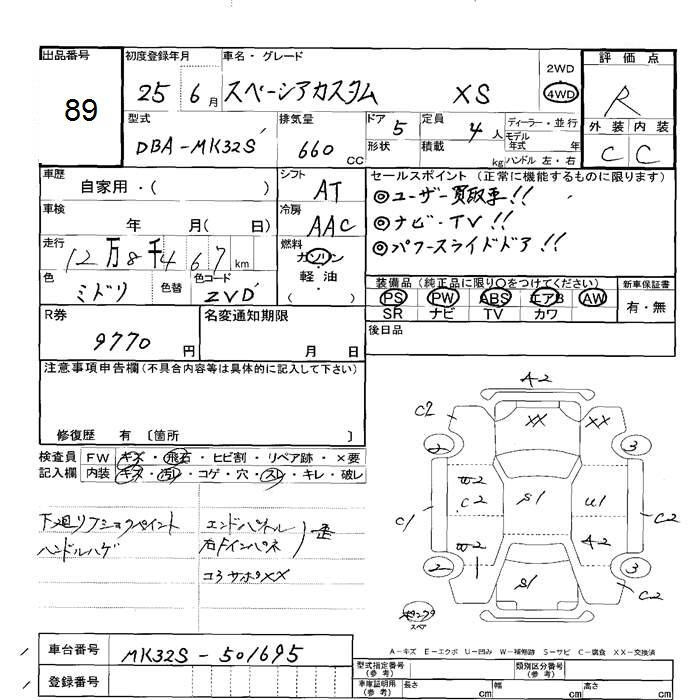 出品番号 初度登録年月 車名・グレード 評価点
89
25 6月 スペーシアカスタム XS
2WD
4WD
R
型式 排気量 ドア 5 定員 ディーラー・並行 外装 内装
DBA-MK32S 660 CC 形状 積載 4人 kg モデル年式 年 ハンドル 左・右
C C
車歴 シフト セールスポイント(正常に機能するものに限ります)
自家用・( ) AT
◎ユーザー買取車!!
車検 冷房
年 月( 日) AAC
◎ナビ・TV!!
走行 燃料
12万8千467km ガソリン・軽油・( )
◎パワースライドドア!!
色 色替 色コード
ミドリ ZVD
装備品(純正品に限り○をつけてください) 新車保証書
PS PW ABS エアB AW 有・無
SR ナビ TV カワ
R券 名変通知期限 後日品
9770円 月 日
注意事項申告欄(不具合内容等は具体的に記入して下さい)
修復歴 有 〔箇所 〕
検査員 FW キズ・飛石・ヒビ割・リペア跡・×要
記入欄 内装 キズ・汚レ・コゲ・穴・スレ・キレ・破レ
下廻リ
ハンドルハゲ
エンドパネル
右Fインパネ
歪
コアサポXX
A2
C2 XX XX
2 3
W2 C2 S1 U1
C1 C2
W2 A2
2 3
S1 C2
スペア
A-キズ E-エクボ U-凹み W-補修跡 S-サビ C-腐食 XX-交換済
車台番号 MK32S-501695
登録番号
型式指定番号(参考) 類別区分番号(参考)
車庫証明用(参考) 長さ cm 幅 cm 高さ cm